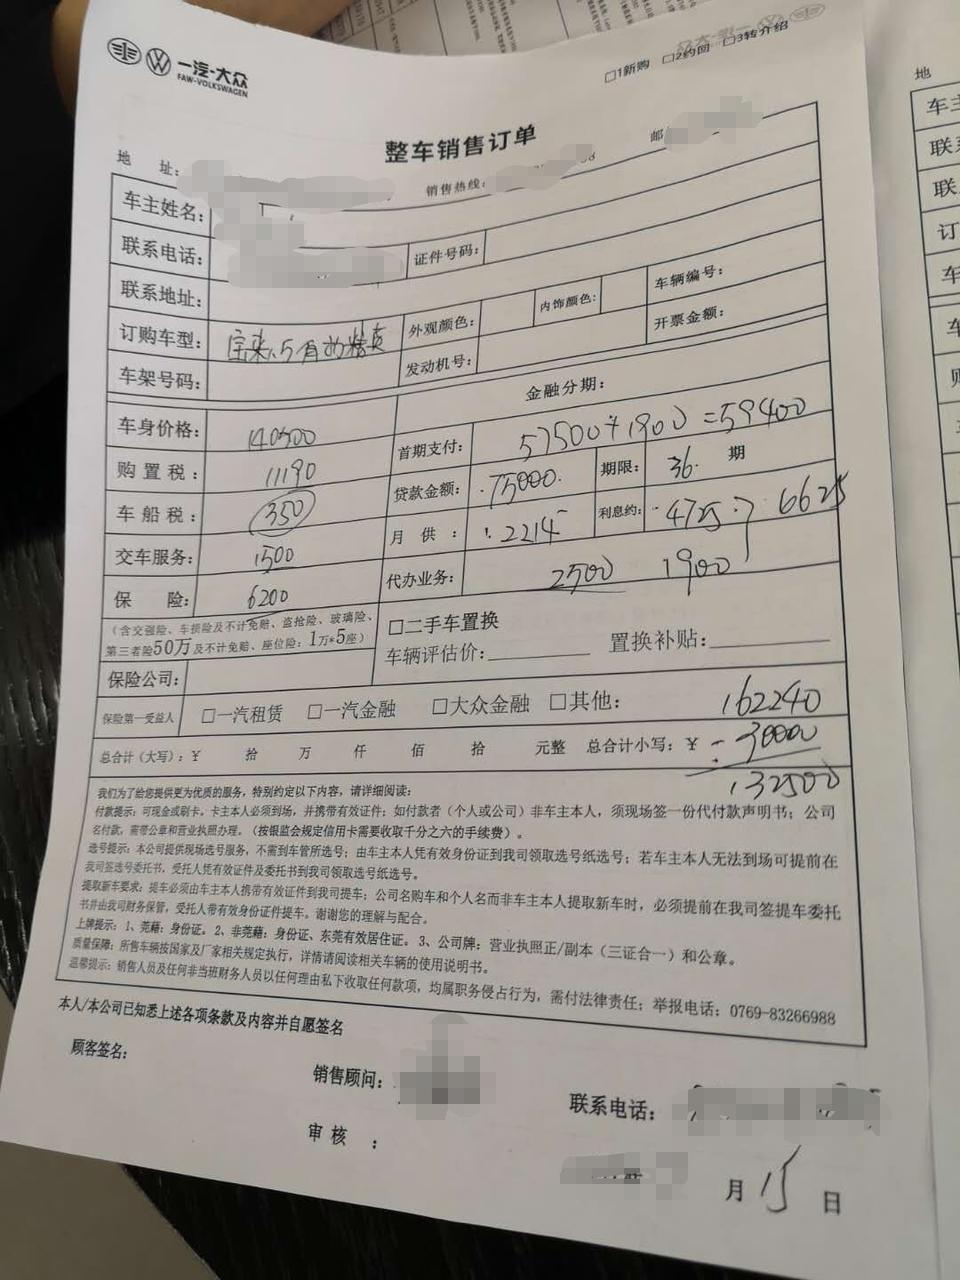 一汽·大众
FAW-VOLKSWAGEN
□1新购 □2约回 □3转介绍
整车销售订单
地 址:
销售热线:
邮
车主姓名:
联系电话:
证件号码:
联系地址:
订购车型:
外观颜色:
内饰颜色:
车辆编号:
车架号码:
发动机号:
开票金额:
金融分期:
车身价格: 140500
首期支付: 57500+1900=59400
购置税: 11190
贷款金额: 75000. 期限: 36. 期
车船税: 350
月供: 2214 利息约: 4725 6625
交车服务: 1500
代办业务: 2500 1900
保 险: 6200
(含交强险、车损险及不计免赔、盗抢险、玻璃险、
第三者险50万及不计免赔、座位险: 1万*5座)
□二手车置换
车辆评估价: 置换补贴:
保险公司:
保险第一受益人 □一汽租赁 □一汽金融 □大众金融 □其他: 162240
总合计(大写): ¥ 拾 万 仟 佰 拾 元整 总合计小写: ¥ -30000
132500
我们为了给您提供更为优质的服务，特别约定以下内容，请详细阅读:
付款提示: 可现金或刷卡，卡主本人必须到场，并携带有效证件; 如付款者（个人或公司）非车主本人，须现场签一份代付款声明书; 公司
名付款，需带公章和营业执照办理。（按银监会规定信用卡需要收取千分之六的手续费）。
选号提示: 本公司提供现场选号服务，不需到车管所选号; 由车主本人凭有效身份证到我司领取选号纸选号; 若车主本人无法到场可提前在
我司签选号委托书，受托人凭有效证件及委托书到我司领取选号纸选号。
提取新车要求: 提车必须由车主本人携带有效证件到我司提车; 公司名购车和个人名而非车主本人提取新车时，必须提前在我司签提车委托
书并由我司财务保管，受托人带有效身份证件提车。谢谢您的理解与配合。
上牌提示: 1、莞籍: 身份证。2、非莞籍: 身份证、东莞有效居住证。3、公司牌: 营业执照正/副本（三证合一）和公章。
质量保障: 所售车辆按国家及厂家相关规定执行，详情请阅读相关车辆的使用说明书。
温馨提示: 销售人员及任何非当班财务人员以任何理由私下收取任何款项，均属职务侵占行为，需付法律责任; 举报电话: 0769-83266988
本人/本公司已知悉上述各项条款及内容并自愿签名
顾客签名:
销售顾问:
联系电话:
审核:
月 15 日